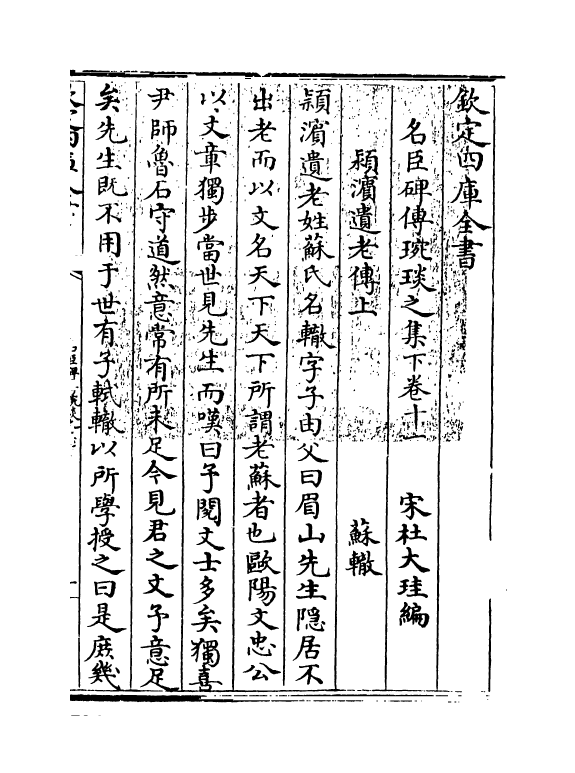 欽定四庫全書
名臣碑傳琬琰之集下卷十一 宋杜大珪編
潁濱遺老傳上 蘇轍
潁濱遺老姓蘇氏名轍字子由父曰眉山先生隱居不
出老而以文名天下天下所謂老蘇者也歐陽文忠公
以文章獨步當世見先生而嘆曰予閱文士多矣獨喜
尹師魯石守道然意常有所未足今見君之文予意足
矣先生既不用于世有子軾轍以所學授之曰是庶幾